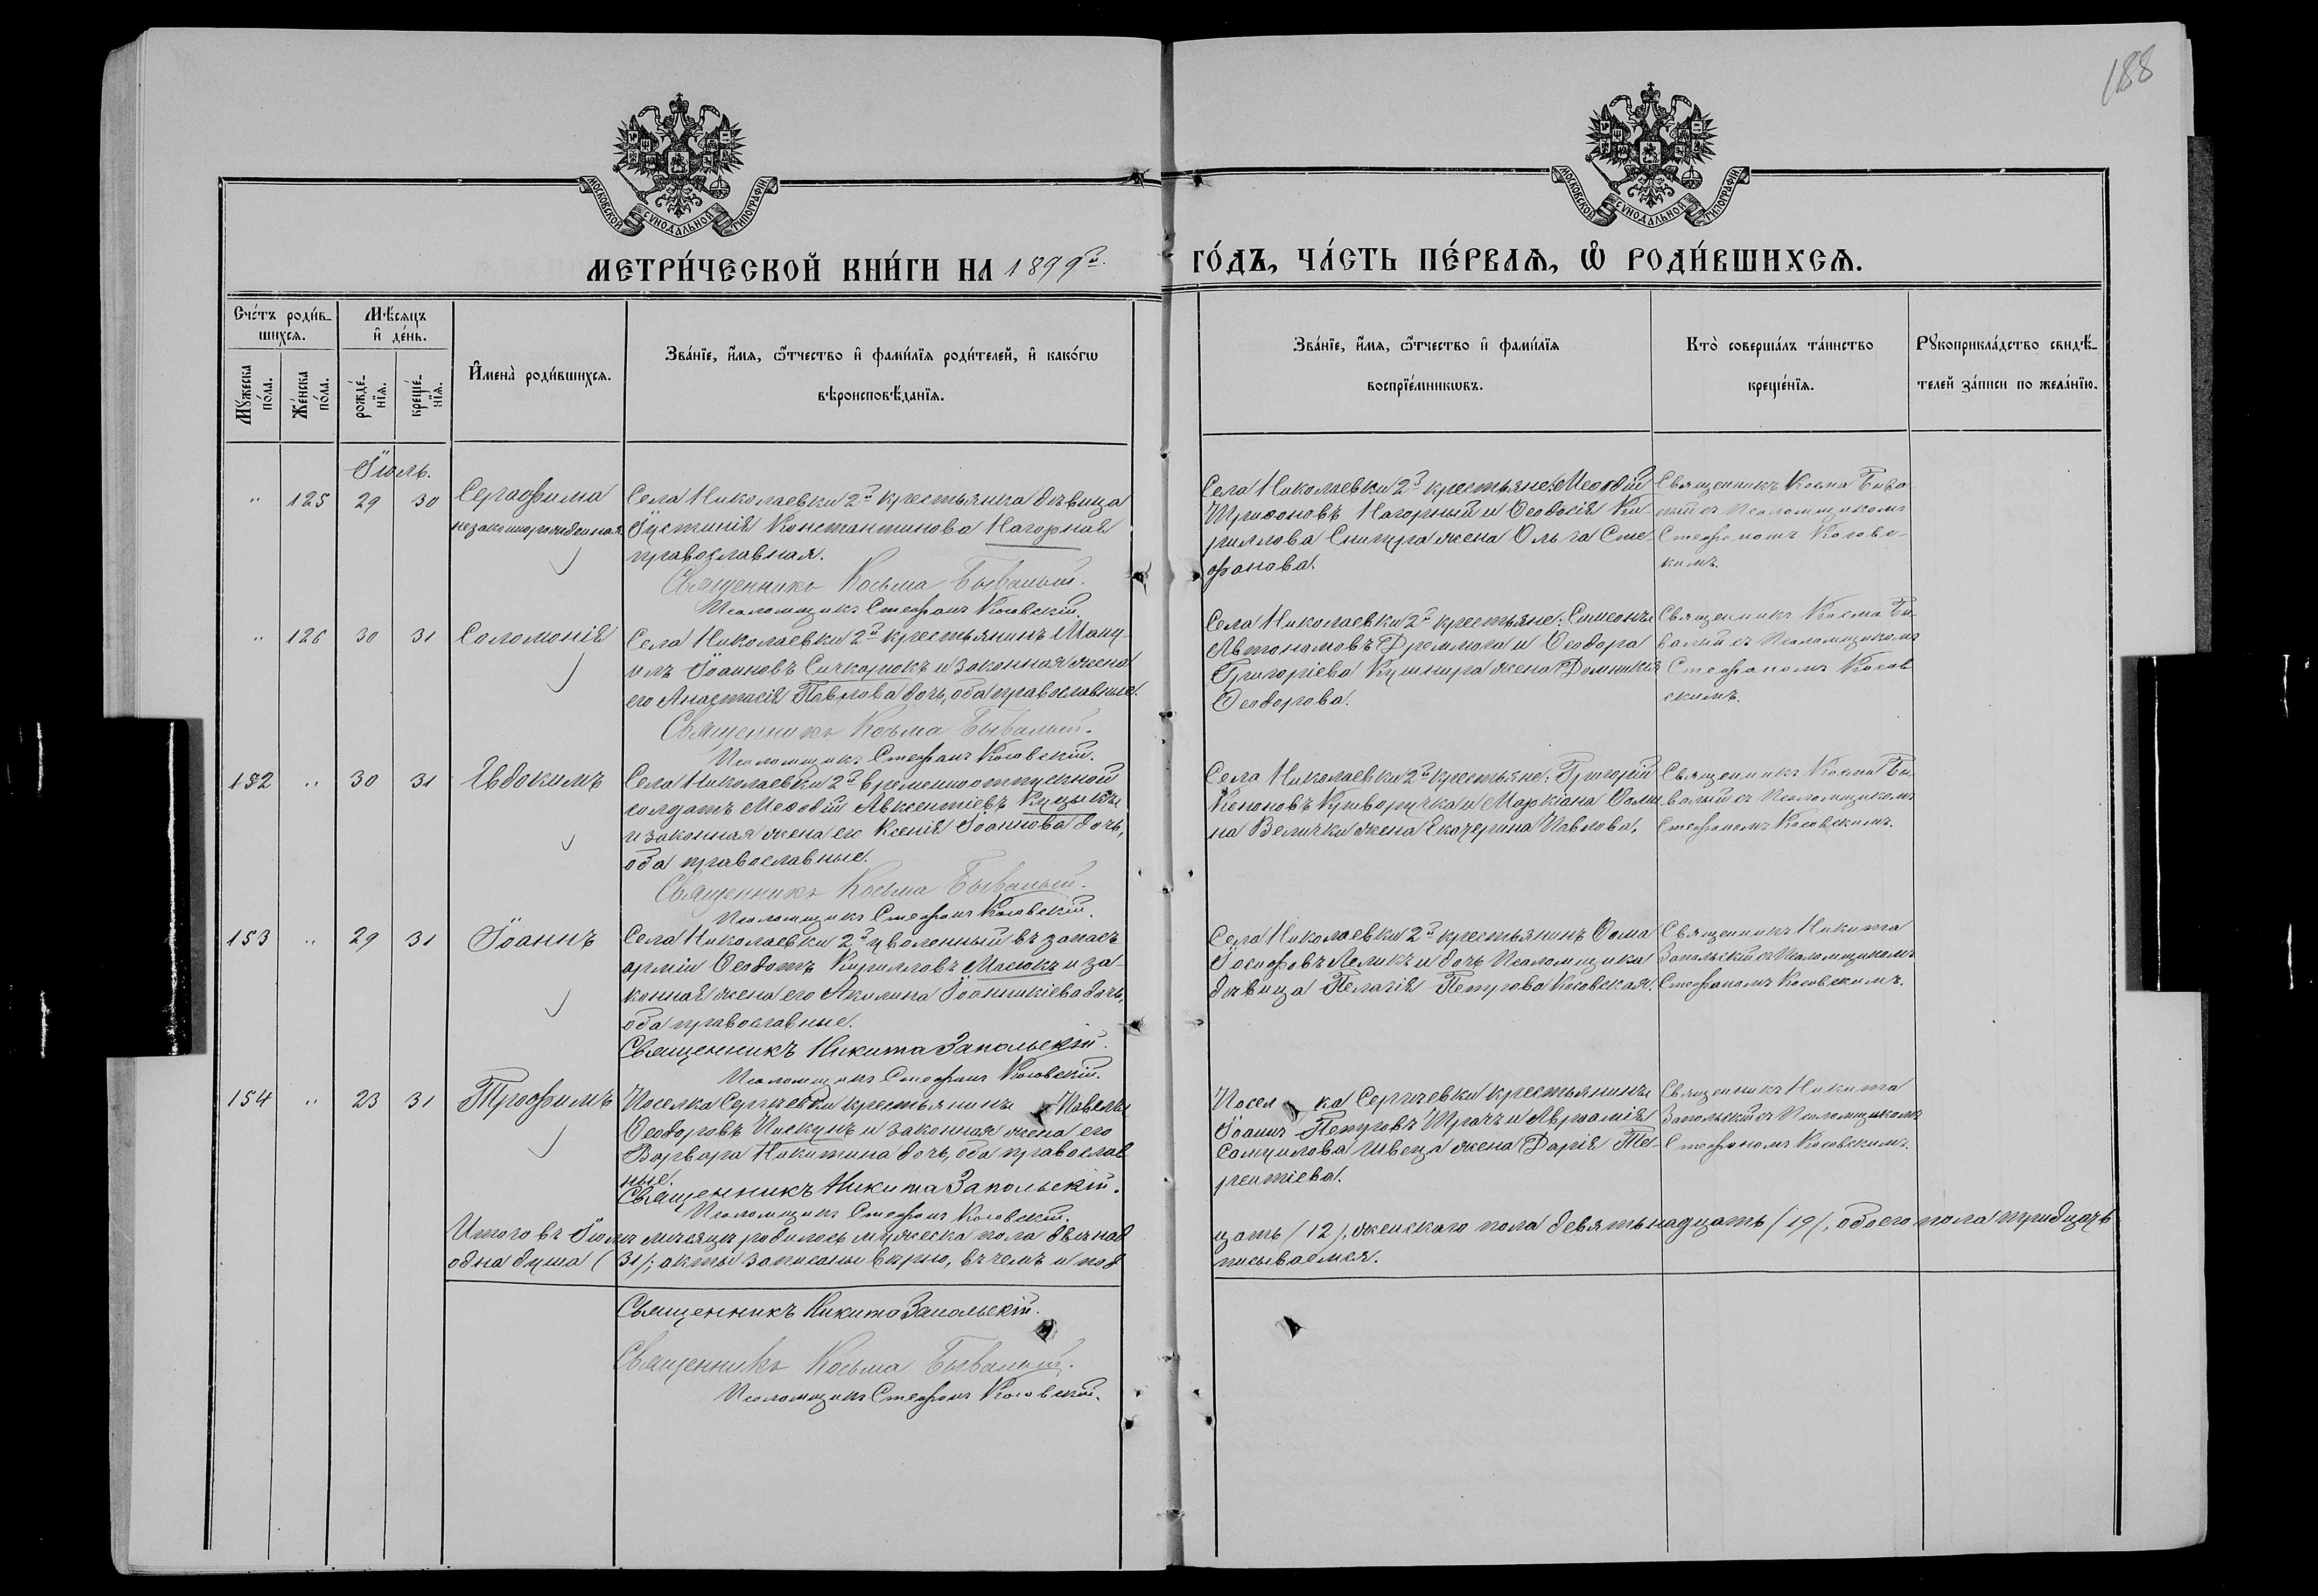 188
МОСКОВСКОЙ СѴНОДАЛЬНОЙ ТИПОГРАФІИ
МОСКОВСКОЙ СѴНОДАЛЬНОЙ ТИПОГРАФІИ
МЕТРИ́ЧЕСКОЙ КНИ́ГИ НА 1899й
ГО́ДЪ, ЧА́СТЬ ПЕ́РВАѦ, Ѡ҆ РОДИ́ВШИХСѦ.
Сче́тъ роди́в-
шихсѧ.
Мꙋжеска по́ла.
Же́нска по́ла.
Мѣ́сѧцъ
и҆ де́нь.
рожде́-
нїѧ.
креще́-
нїѧ.
И҆мена̀ роди́вшихсѧ.
Зва́нїе, и҆́мѧ, ѻ҆́тчество и҆ фами́лїѧ роди́телей, и҆ како́гѡ
вѣроисповѣ́данїѧ.
Зва́нїе, и҆́мѧ, ѻ҆́тчество и҆ фами́лїѧ
воспрїе́мникѡвъ.
Кто̀ соверша́лъ та́инство
креще́нїѧ.
Рꙋкоприкла́дство свидѣ́-
телей за́писи по жела́нїю.
Іюль.
" 125 29 30
Серафима
незаконнорожденная
Села Николаевки 2й крестьянка дѣвица
Іустинія Константинова Нагорная
православная.
Священникъ Косьма Бывалый.
Псаломщикъ Стефанъ Косовскій
Села Николаевки 2й крестьяне: Меѳодій
Трифоновъ Нагорный и Ѳеодосія Ки-
риллова Снигура жена Ольга Сте-
фанова.
Священникъ Косма Быва
лый съ Псаломщикомъ
Стефаномъ Косовс-
кимъ.
" 126 30 31 Соломонія
Села Николаевки 2й крестьянинъ Ману-
илъ Іоанновъ Сичкарюкъ и законная жена
его Анастасія Павлова дочь, оба православные.
Священникъ Косьма Бывалый.
Псаломщикъ Стефанъ Косовскій.
Села Николаевки 2й крестьяне: Симеонъ
Автономовъ Дремлюга и Ѳеодора
Григоріева Кушнира жена Домникія
Ѳеодорова.
Священникъ Косма Бы-
валый съ Псаломщикомъ
Стефаномъ Косов
скимъ.
152 " 30 31 Евдокимъ
Села Николаевки 2й временноотпускной
солдатъ Меѳодій Авксентіевъ Куцыкъ
и законная жена его Ксенія Іоаннова дочь,
оба православные.
Священникъ Косьма Бывалый.
Псаломщикъ Стефанъ Косовскій.
Села Николаевки 2й крестьяне: Григорій
Кононовъ Криворучка и Маркіана Ѳоми
на Велички жена Екатерина Павлова.
Священникъ Косма Бы-
валый съ Псаломщикомъ
Стефаномъ Косовскимъ.
153 " 29 31 Іоаннъ
Села Николаевки 2й уволенный въ запасъ
арміи Ѳеодотъ Кирилловъ Масюкъ и за-
конная жена его Акилина Іоанникіева дочь,
оба православные.
Священникъ Никита Запольскій.
Псаломщикъ Стефанъ Косовскій.
Села Николаевки 2й крестьянинъ Ѳома
Іосифовъ Леликъ и дочь Псаломщика
дѣвица Пелагія Петрова Косовская.
Священникъ Никита
Запольскій съ Псаломщикомъ
Стефаномъ Косовскимъ.
154 " 23 31 Трофимъ
Поселка Сергіевки крестьянинъ Павелъ
Ѳеодоровъ Пискунъ и законная жена его
Варвара Никитина дочь, оба православ
ные.
Священникъ Никита Запольскій.
Псаломщикъ Стефанъ Косовскій.
Поселка Сергіевки крестьянинъ
Іоаннъ Петровъ Ткачъ и Авраамія
Самуилова Швеца жена Дарія Те-
рентіева.
Священникъ Никита
Запольскій съ Псаломщикомъ
Стефаномъ Косовскимъ.
Итого въ Іюлѣ мѣсяцѣ родилось мужеска пола двѣнад
цать /12/, женскаго пола девятьнадцать /19/, обоего пола тридцать
одна душа (31/; акты записаны вѣрно, въ чемъ и под
писываемся.
Священникъ Никита Запольскій.
Священникъ Косьма Бывалый.
Псаломщикъ Стефанъ Косовскій.